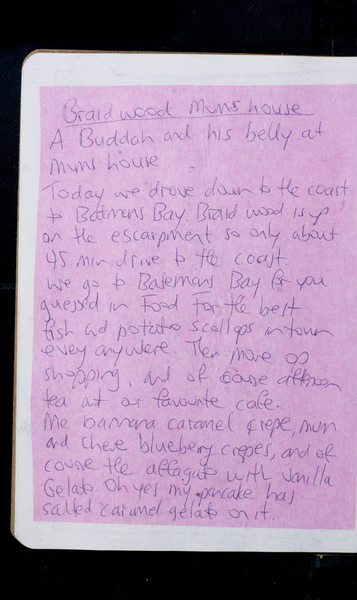 Braidwood Mums house
A Buddah and his belly at
mums house
Today we drove down to the coast
to Batmans Bay. Braid wood is up
on the escarpment so only about
45 min drive to the coast.
we go to Batemans Bay for you
guessed in Food For the best
fish and potato scollops in town
evey anywhere. Then more op
shopping, and of couse afternoon
tea at our favourite cafe.
Me bannana caramel crepe, mum
and cheve blueberry crepes, and of
course the affagato with vanilla
Gelato. Oh yes my pancake has
salted caramel gelato on it.